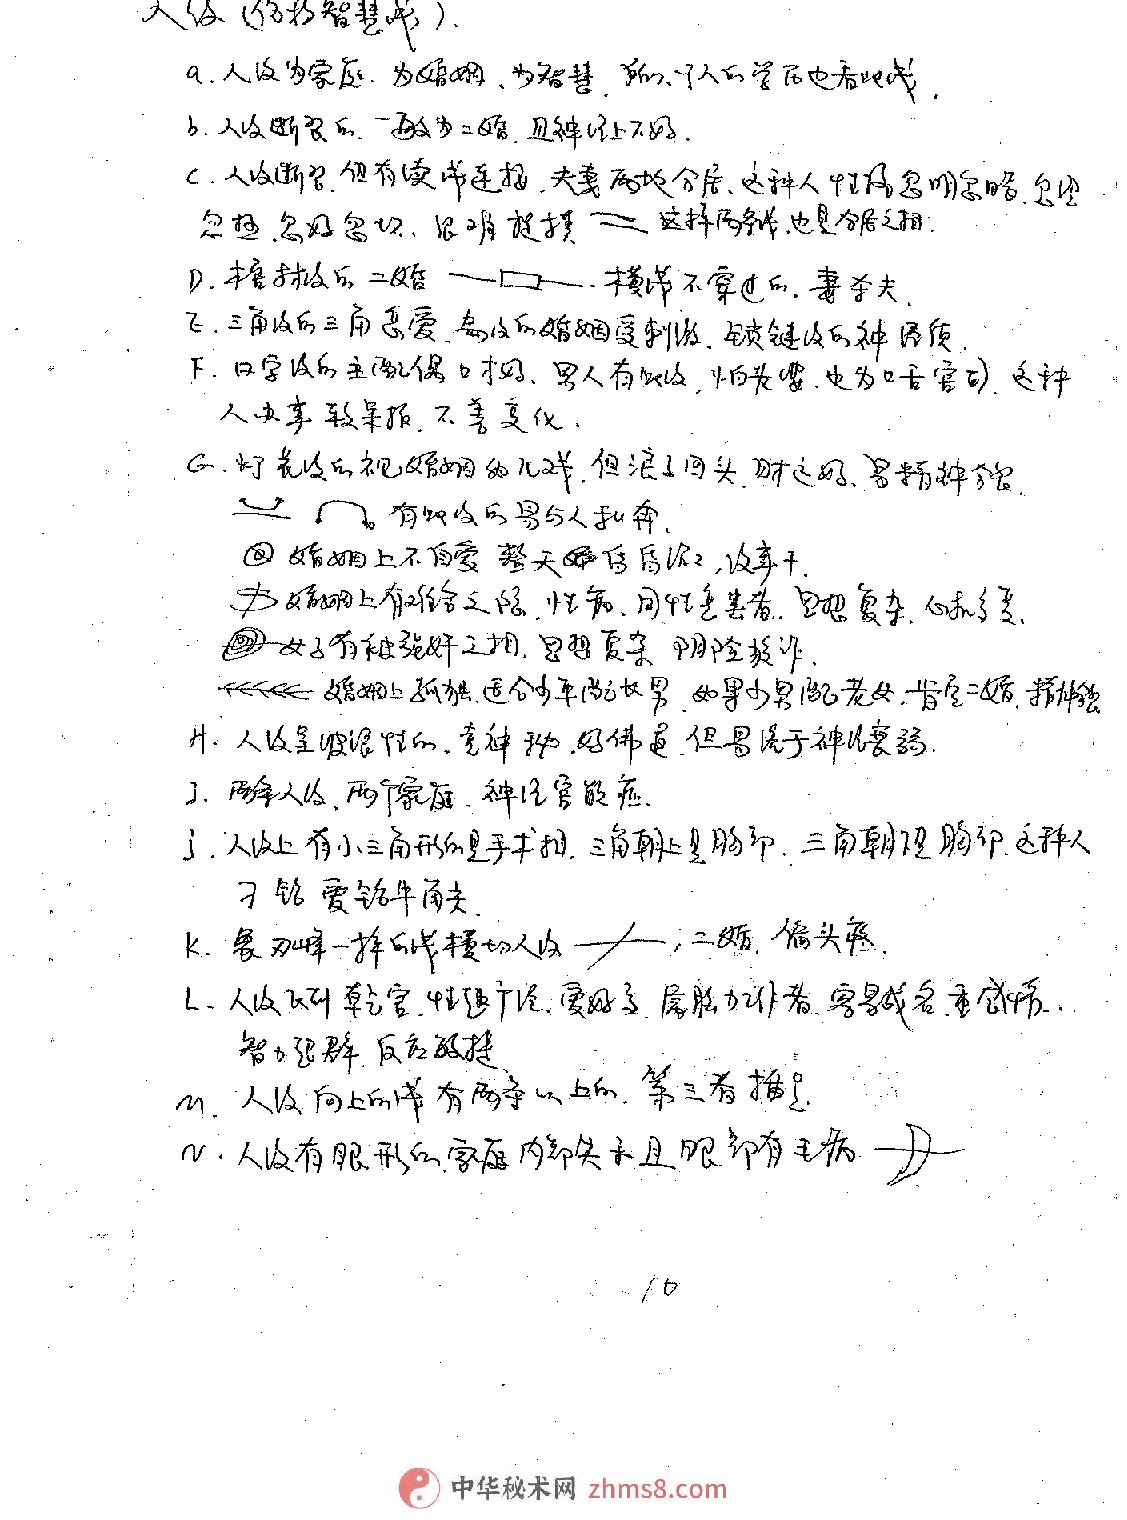 人纹（俗称智慧线）.
a. 人纹为家庭. 为婚姻、为智慧. 个人的学历也看此线.
b. 人纹断裂的. 一般为二婚. 且神经上不好.
c. 人纹断裂. 但有续线连接. 夫妻两地分居. 这种人性格忽明忽暗. 忽
忽 忽好忽坏、很难 这样两条线. 也是分居之相.
D. 纹的二婚 横线不穿过的. 妻杀夫.
E. 三角纹的三角恋爱. 岛纹的婚姻受刺激. 锁链纹的神经质.
F. 口字纹的主配偶口才好、男人有此纹. 怕老婆. 也为口舌官司. 这种
人办事较呆板. 不善变化.
G. 灯花纹的视婚姻如儿戏. 但浪子回头. 财运好、易精神分裂.
有此纹的易与人私奔.
婚姻上不自爱 整天昏昏沉沉, 没事干.
婚姻上有难言之隐. 性病. 同性恋患者. 思想复杂. 心
女子有被强奸之相. 思想复杂 阴险狡诈.
婚姻上孤独. 适合少年配女男. 如果少男配老女. 肯定二婚. 精神
H. 人纹呈波浪性的. 神秘. 好佛道. 但易患于神经衰弱.
J. 两条人纹. 两个家庭. 神经官能症.
j. 人纹上有小三角形的是手术相. 三角朝上是胸部. 三角朝 胸部. 这种人
刁钻 爱钻牛角尖.
K. 象刀 一样的线横切人纹 , 二婚. 偏头疼.
L. 人纹 乾宫. 广泛. 爱好多. 属脑力工作者. 容易成名. 重感情..
智力超群. 反应敏捷
M. 人纹向上的线有两条以上的. 第三者插足.
N. 人纹有眼形的. 家庭内部失 且眼部有毛病
10
中华秘术网 zhms8.com